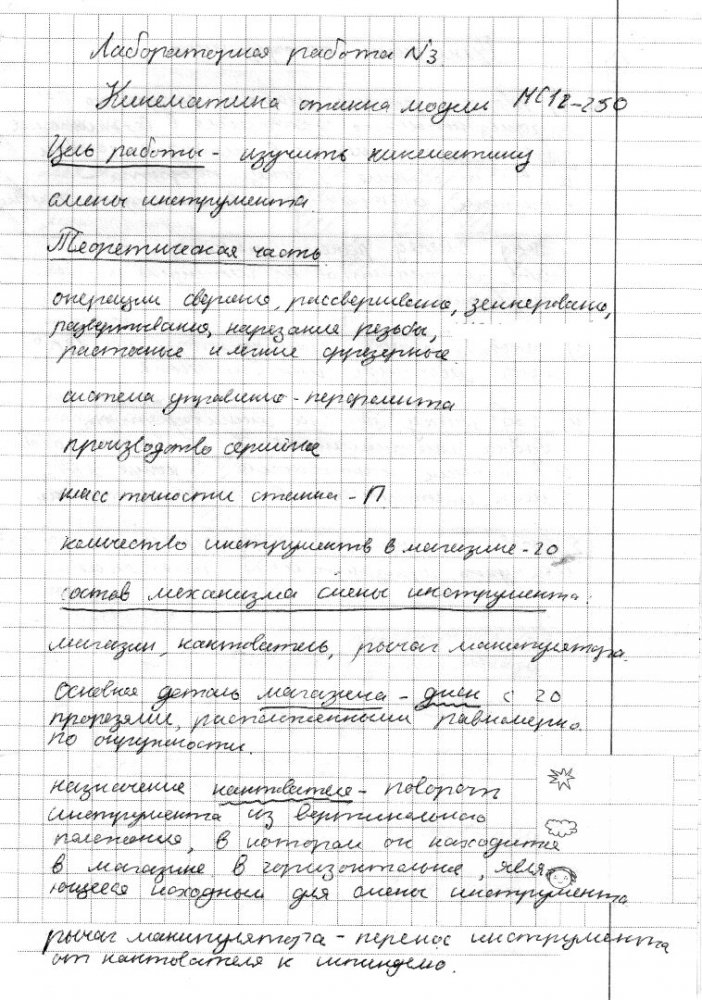 Лабораторная работа №3
Кинематика станка модели МС12-250
Цель работы - изучить кинематику
смены инструмента.
Теоретическая часть
операции сверления, рассверливания, зенкерования,
развертывания, нарезание резьбы,
расточные и легкие фрезерные
система управления - перфолента
производство серийное
класс точности станка - П
количество инструментв в магазине - 20
состав механизма смены инструмента:
магазин, кантователь, рычаг манипулятора.
Основная деталь магазина - диск с 20
прорезями, расположенными равномерно
по окружности.
назначение кантователя - поворот
инструмента из вертикального
положения, в котором он находится
в магазине в горизонтальное, явля-
ющееся исходным для смены инструмента
рычаг манипулятора - перенос инструмента
от кантователя к шпинделю.